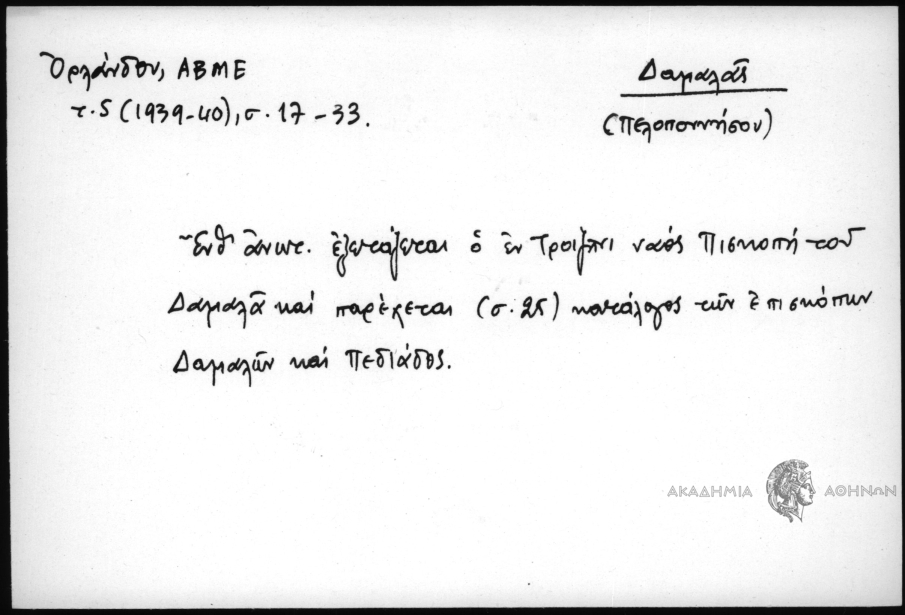 Ὀρλάνδου, ΑΒΜΕ
τ. 5 (1939-40), σ. 17 – 33.
Δαμαλᾶς
(Πελοποννήσου)
Ἔνθ' ἀνωτ. ἐξετάζεται ὁ ἐν Τροιζῆνι ναός Πισκοπή τοῦ
Δαμαλᾶ καί παρέχεται (σ. 25) κατάλογος τῶν ἐπισκόπων
Δαμαλῶν καί Πεδιάδος.
ΑΚΑΔΗΜΙΑ ΑΘΗΝΩΝ